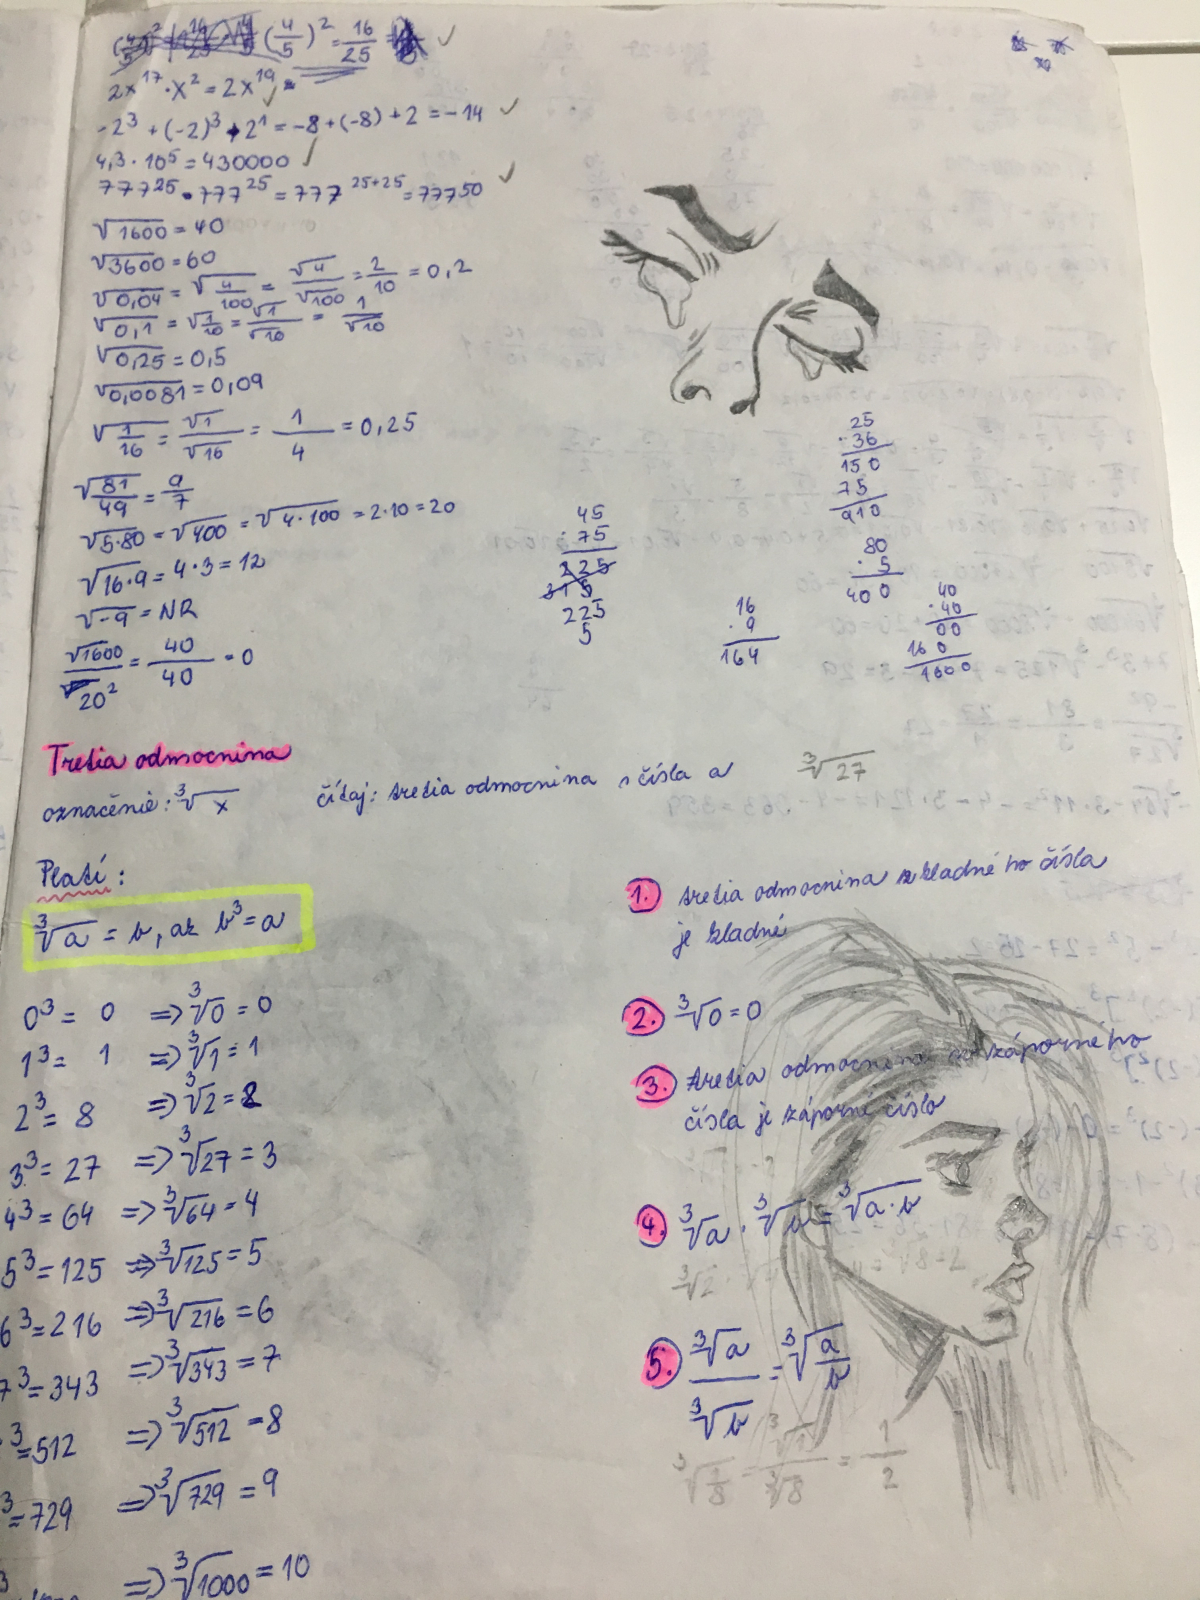 (4/5)² = 16/25
2x¹⁷ · x² = 2x¹⁹
-2³ + (-2)³ + 2¹ = -8 + (-8) + 2 = -14
4,3 · 10⁵ = 430000
777²⁵ · 777²⁵ = 777²⁵⁺²⁵ = 777⁵⁰
√1600 = 40
√3600 = 60
√0,04 = √(4/100) = √4/√100 = 2/10 = 0,2
√0,1 = √(1/10) = √1/√10 = 1/√10
√0,25 = 0,5
√0,0081 = 0,09
√(1/16) = √1/√16 = 1/4 = 0,25
√(81/49) = 9/7
√5·80 = √400 = √4·100 = 2·10 = 20
√16·9 = 4·3 = 12
√-9 = NR
√1600/20² = 40/40 = 0
25
·36
150
75
910
45
·75
225
315
225
5
80
·5
400
16
·9
164
40
·40
00
160
1600
Tretia odmocnina
označenie: ³√x čítaj: tretia odmocnina s čísla a ³√27
Platí:
³√a = b, ak b³ = a
0³ = 0 => ³√0 = 0
1³ = 1 => ³√1 = 1
2³ = 8 => ³√2 = 8
3³ = 27 => ³√27 = 3
4³ = 64 => ³√64 = 4
5³ = 125 => ³√125 = 5
6³ = 216 => ³√216 = 6
7³ = 343 => ³√343 = 7
³ = 512 => ³√512 = 8
³ = 729 => ³√729 = 9
³ => ³√1000 = 10
1. tretia odmocnina z kladného čísla
je kladné
2. ³√0 = 0
3. tretia odmocnina zo záporného
čísla je záporné číslo
4. ³√a · ³√b = ³√a·b
³√2
5. ³√a/³√b = ³√(a/b)
³√(1/8) = ³√1/³√8 = 1/2